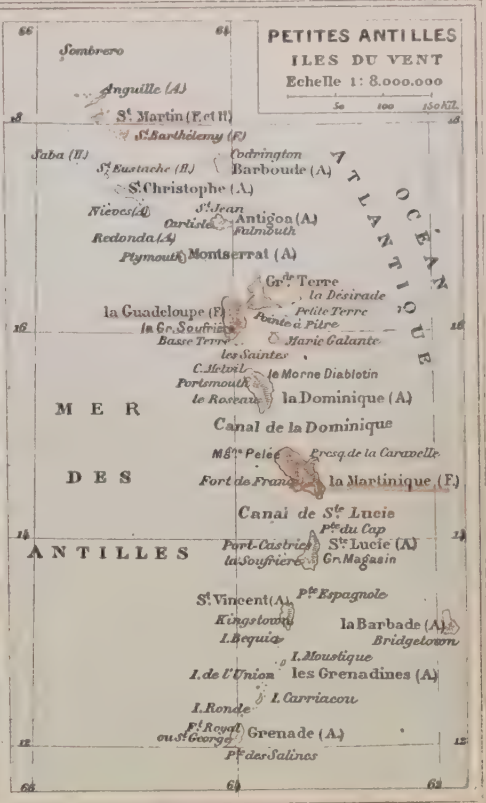 66
64
PETITES ANTILLES
ILES DU VENT
Echelle 1: 8.000.000
50 100 150 Kil.
Sombrero
Anguille (A)
18
St. Martin (F. et H)
18
St. Barthélemy (F.)
Saba (H.)
Codrington
St. Eustache (H.)
Barboude (A)
ATLANTIQUE
OCÉAN
St. Christophe (A.)
Nièves (A)
St. Jean
Carlisle
Antigoa (A.)
Falmouth
Redonda (A)
Plymouth
Montserrat (A)
Grde Terre
la Désirade
la Guadeloupe (F.)
Petite Terre
Pointe à Pitre
16
la Gr. Soufrière
16
Basse Terre
Marie Galante
les Saintes
C. Melvil
le Morne Diablotin
Portsmouth
le Roseau
la Dominique (A)
MER
Canal de la Dominique
Mgne Pelée
Presq. de la Caravelle
DES
Fort de France
la Martinique (F.)
Canal de Ste. Lucie
Pte du Cap
14
14
ANTILLES
Port-Castries
Ste. Lucie (A)
la Soufrière
Gr. Magasin
Pte Espagnole
St. Vincent (A)
Kingstown
la Barbade (A)
I. Bequia
Bridgetown
I. Moustique
I. de l'Union
les Grenadines (A)
I. Carriacou
I. Ronde
Ft. Royal
ou St. George
Grenade (A.)
12
12
Pte des Salines
66
64
62